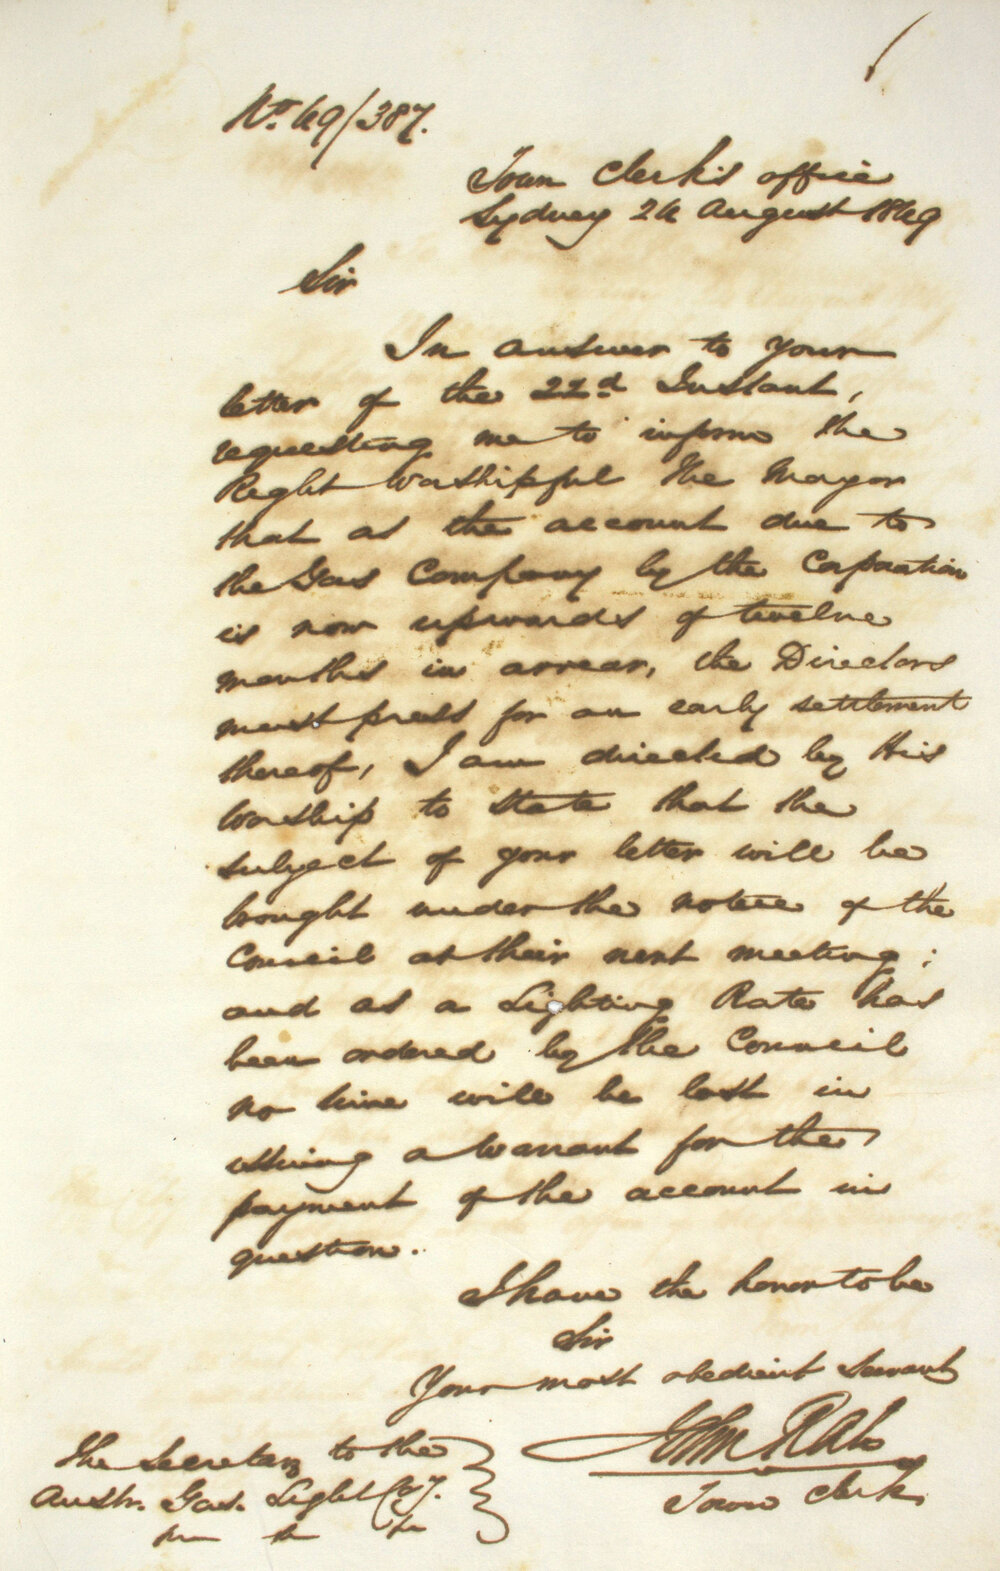 No. 49/387.
Town Clerk's office
Sydney 24 August 1849
Sir
In answer to your
letter of the 22d. Instant,
requesting me to inform the
Right Worshipful the Mayor
that as the account due to
the Gas Company by the Corporation
is now upwards of twelve
months in arrear, the Directors
must press for an early settlement
thereof, I am directed by His
Worship to state that the
subject of your letter will be
brought under the notice of the
Council at their next meeting;
and as a Lighting Rate has
been ordered by the Council
no time will be lost in
issuing a Warrant for the
payment of the account in
question.
I have the honor to be
Sir
Your most obedient Servant
John Rae
Town Clerk
The Secretary to the
Austn. Gas. Light Coy.